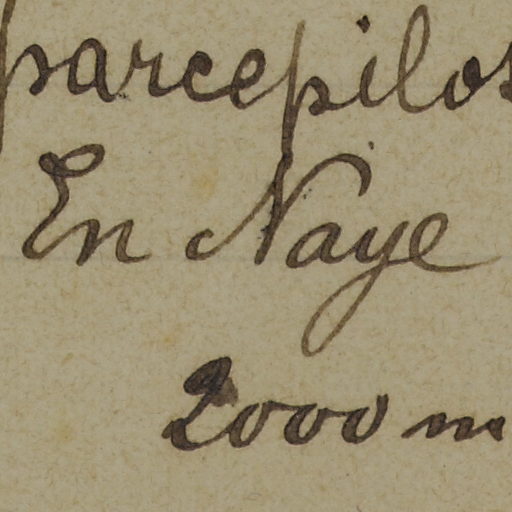 parcepilos
En Naye
2000 m